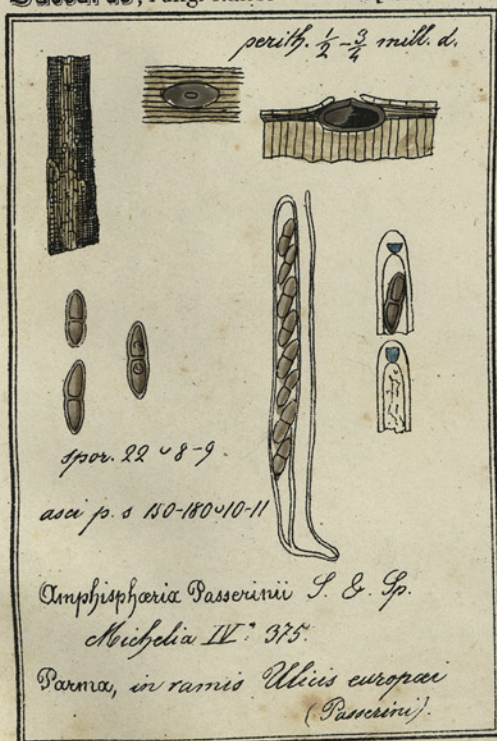 perith. ½-¾ mill. d.
spor. 22 ᴗ 8-9
asci p. s 150-180 ᴗ 10-11
Amphisphæria Passerinii S. & Sp.
Michelia IV: 375.
Parma, in ramis Ulicis europæi
(Passerini).